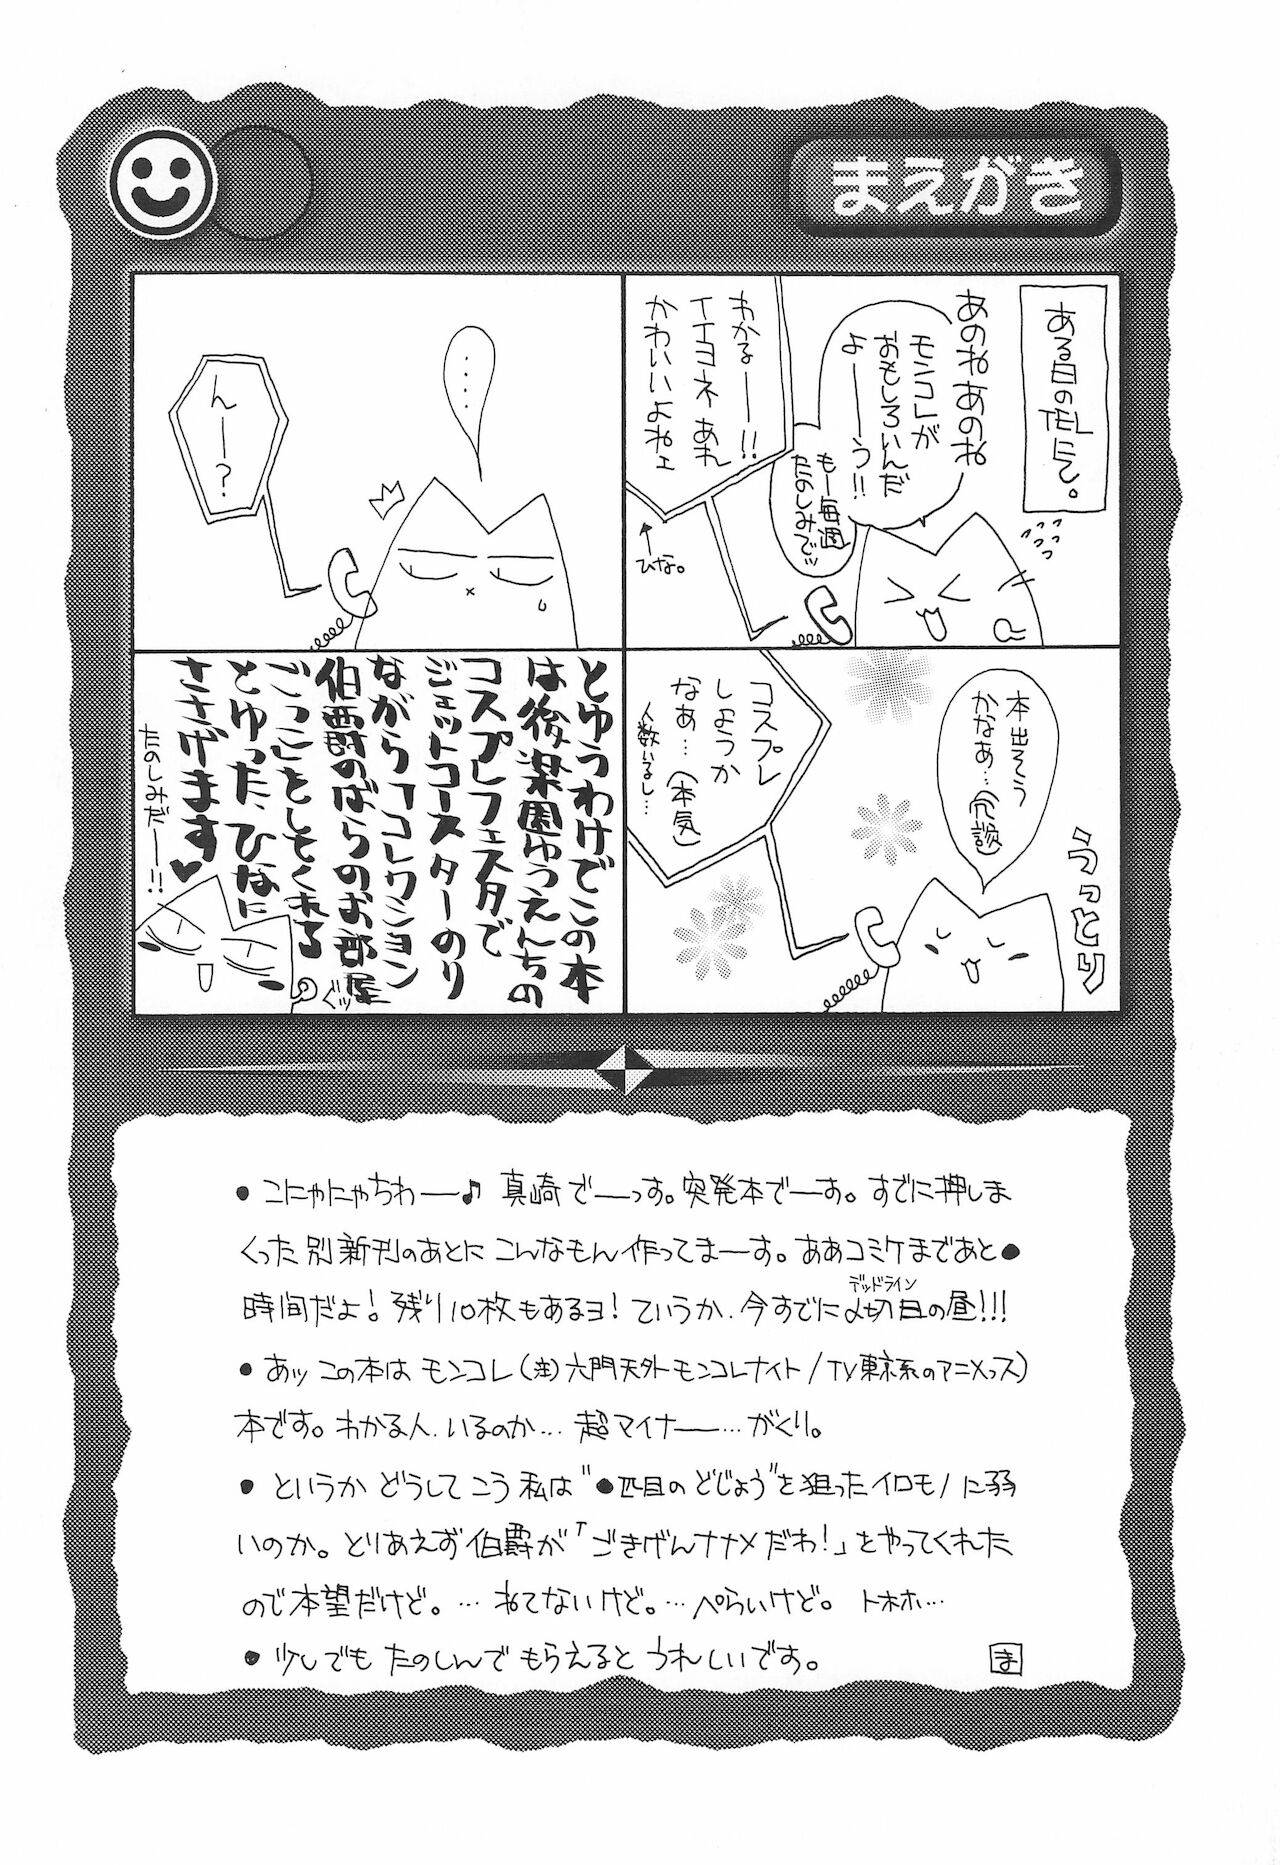 まえがき
ある日のTELにて。
あのねあのね
モンコレが
おもしろいんだ
よーーう!!
もー毎週
たのしみでッ
わかるーー!!
イイヨネあれ
かわいいよねェ
↑
ひな。
・・・・
んー?
本出そう
かなあ…(冗談)
うっとり
コスプレ
しようか
なあ…(本気)
人数いるし…
とゆうわけでこの本
は後楽園ゆうえんちの
コスプレフェスタで
ジェットコースターのり
ながら「コレクション
伯爵のばらのお部屋
ごっこ」をしてくれる
とゆった、ひなに
ささげます♥
たのしみだー!!
ぐッ
●こにゃにゃちわー♪ 真崎でーっす。突発本でーす。すでに押しま
くった別新刊のあとにこんなもん作ってまーす。ああコミケまであと●
時間だよ!残り10枚もあるヨ!ていうか、今すでに〆切日の昼!!!
デッドライン
●あッ この本はモンコレ(注)六門天外モンコレナイト/TV東京系のアニメっス)
本です。わかる人、いるのか…超マイナー…がくり。
●というかどうしてこう私は"●匹目のどじょう"を狙ったイロモノに弱
いのか。とりあえず伯爵が「ごきげんナナメだわ!」をやってくれた
ので本望だけど。…ねてないけど。…ぺらいけど。トホホ…
●少しでもたのしんでもらえるとうれしいです。
ま